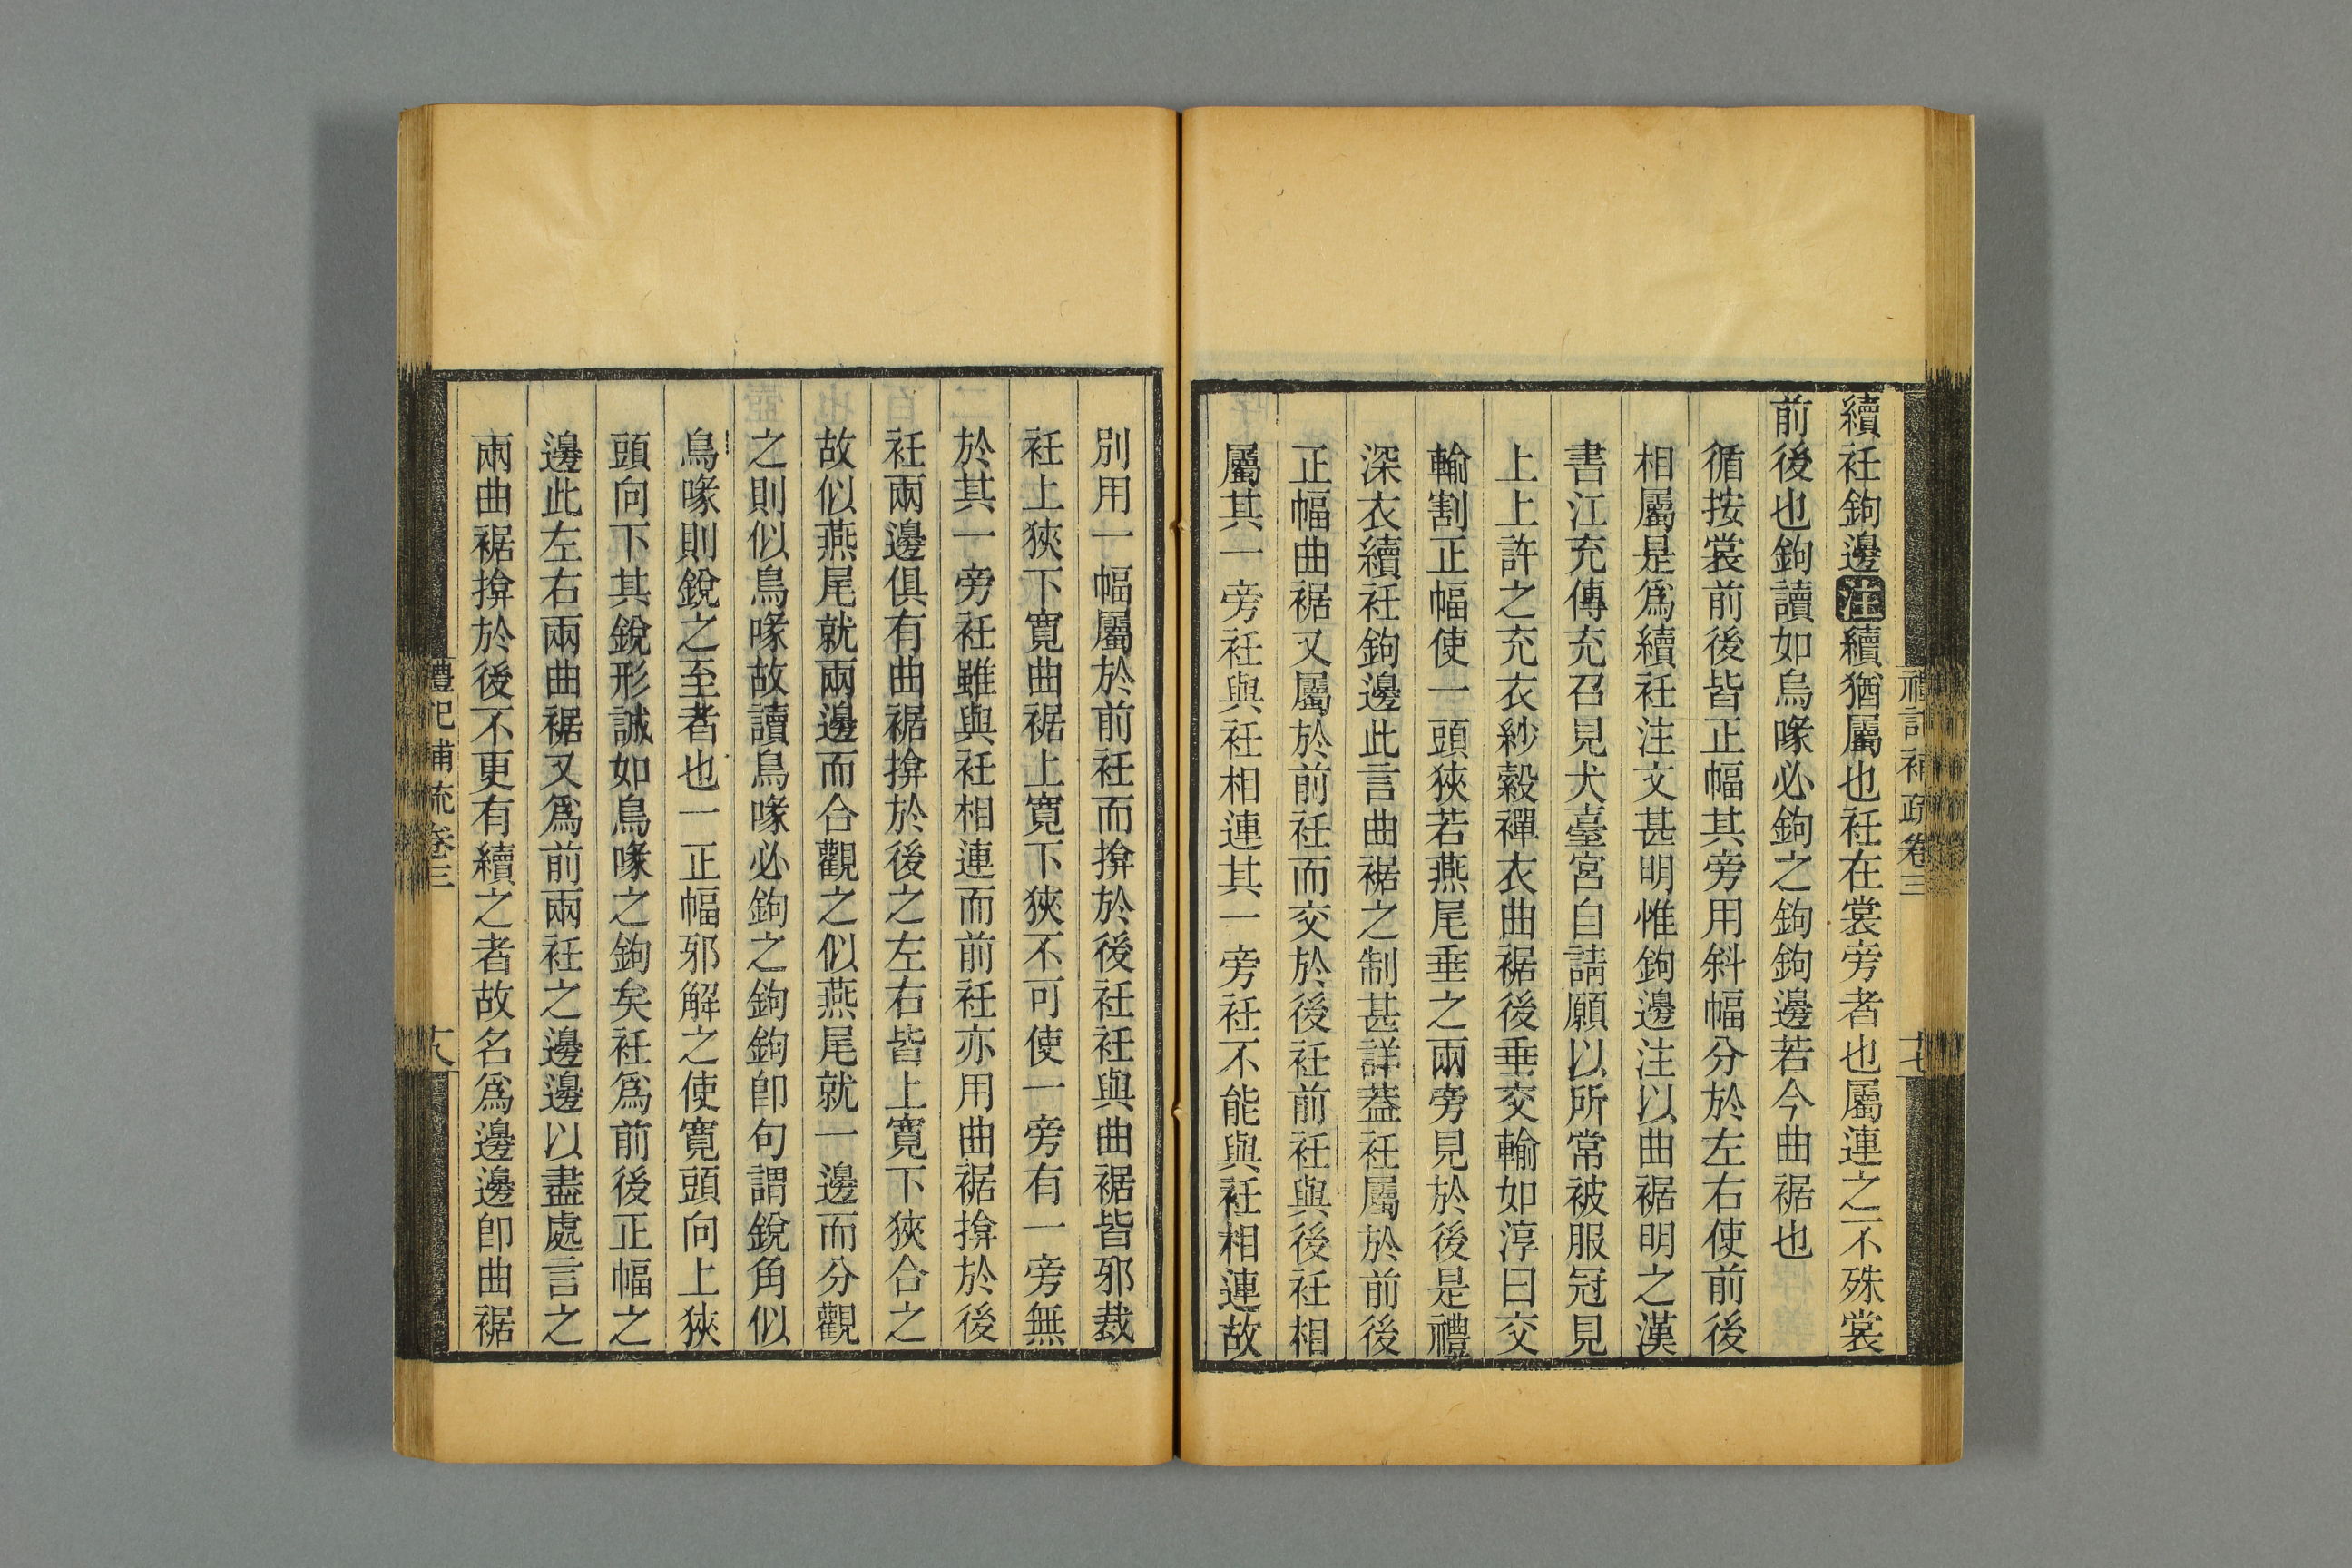 續衽鉤邊注續猶屬也衽在裳旁者也屬連之不殊裳
前後也鉤讀如鳥喙必鉤之鉤鉤邊若今曲裾也
循按裳前後皆正幅其旁用斜幅分於左右使前後
相屬是爲續衽注文甚明惟鉤邊注以曲裾明之漢
書江充傳充召見犬臺宮自請願以所常被服冠見
上上許之充衣紗縠禪衣曲裾後垂交輸如淳曰交
輸割正幅使一頭狹若燕尾垂之兩旁見於後是禮
深衣續衽鉤邊此言曲裾之制甚詳葢衽屬於前後
正幅曲裾又屬於前衽而交於後衽前衽與後衽相
屬其一旁衽與衽相連其一旁衽不能與衽相連故
禮記補疏卷三
十七
別用一幅屬於前衽而揜於後衽衽與曲裾皆邪裁
衽上狹下寬曲裾上寬下狹不可使一旁有一旁無
於其一旁衽雖與衽相連而前衽亦用曲裾揜於後
衽兩邊俱有曲裾揜於後之左右皆上寬下狹合之
故似燕尾就兩邊而合觀之似燕尾就一邊而分觀
之則似鳥喙故讀鳥喙必鉤之鉤鉤卽句謂銳角似
鳥喙則銳之至者也一正幅邪解之使寬頭向上狹
頭向下其銳形誠如鳥喙之鉤矣衽爲前後正幅之
邊此左右兩曲裾又爲前兩衽之邊邊以盡處言之
兩曲裾揜於後不更有續之者故名爲邊邊卽曲裾
禮記補疏卷三
十八